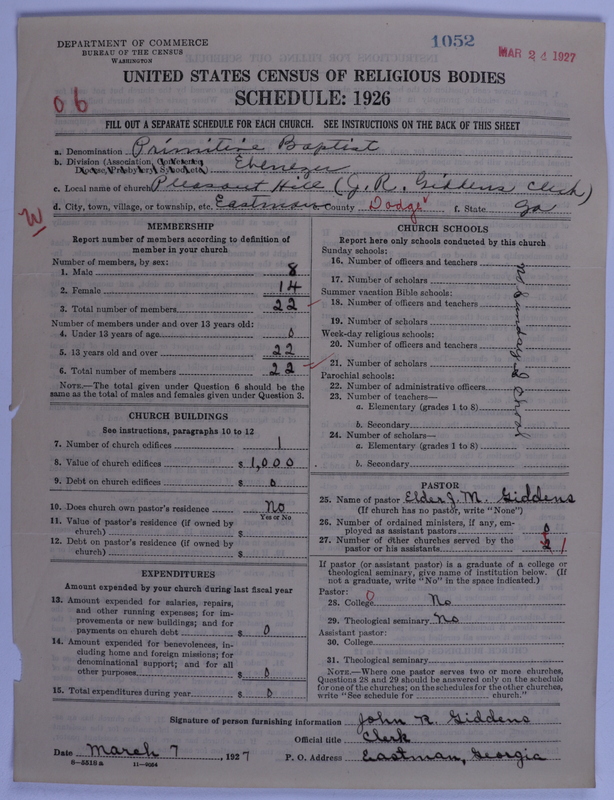 1052
MAR 24 1927
DEPARTMENT OF COMMERCE
BUREAU OF THE CENSUS
WASHINGTON
UNITED STATES CENSUS OF RELIGIOUS BODIES
SCHEDULE: 1926
06
FILL OUT A SEPARATE SCHEDULE FOR EACH CHURCH. SEE INSTRUCTIONS ON THE BACK OF THIS SHEET
a. Denomination Primitive Baptist
b. Division (Association, Conference, Ebenezer
Diocese, Presbytery, Synod, etc.)
c. Local name of church Pleasant Hill (J. R. Giddens Clerk)
d. City, town, village, or township, etc. Eastman County Dodge f. State Ga
W
MEMBERSHIP
Report number of members according to definition of
member in your church
Number of members, by sex:
1. Male 8
2. Female 14
3. Total number of members 22
Number of members under and over 13 years old:
4. Under 13 years of age 0
5. 13 years old and over 22
6. Total number of members 22
NOTE.—The total given under Question 6 should be the
same as the total of males and females given under Question 3.
CHURCH BUILDINGS
See instructions, paragraphs 10 to 12
7. Number of church edifices 1
8. Value of church edifices $ 1,000
9. Debt on church edifices $ 0
10. Does church own pastor's residence No
Yes or No
11. Value of pastor's residence (if owned by
church) $
12. Debt on pastor's residence (if owned by
church) $
EXPENDITURES
Amount expended by your church during last fiscal year
13. Amount expended for salaries, repairs,
and other running expenses; for im-
provements or new buildings; and for
payments on church debt $ 0
14. Amount expended for benevolences, in-
cluding home and foreign missions; for
denominational support; and for all
other purposes $ 0
15. Total expenditures during year $ 0
CHURCH SCHOOLS
Report here only schools conducted by this church
Sunday schools:
16. Number of officers and teachers
17. Number of scholars
Summer vacation Bible schools:
18. Number of officers and teachers
19. Number of scholars
Week-day religious schools:
20. Number of officers and teachers
21. Number of scholars
Parochial schools:
22. Number of administrative officers
23. Number of teachers—
a. Elementary (grades 1 to 8)
b. Secondary
24. Number of scholars—
a. Elementary (grades 1 to 8)
b. Secondary
no Sunday School
PASTOR
25. Name of pastor Elder J. M. Giddens
(If church has no pastor, write "None")
26. Number of ordained ministers, if any, em-
ployed as assistant pastors 0
27. Number of other churches served by the
pastor or his assistants 2 1
If pastor (or assistant pastor) is a graduate of a college or
theological seminary, give name of institution below. (If
not a graduate, write "No" in the space indicated.)
Pastor: 0
28. College No
29. Theological seminary No
Assistant pastor:
30. College
31. Theological seminary
NOTE.—Where one pastor serves two or more churches,
Questions 28 and 29 should be answered only on the schedule
for one of the churches; on the schedules for the other churches,
write "See schedule for church."
Signature of person furnishing information John R Giddens
Official title Clerk
Date March 7, 1927 P. O. Address Eastman, Georgia
8-5518 a 11-9054